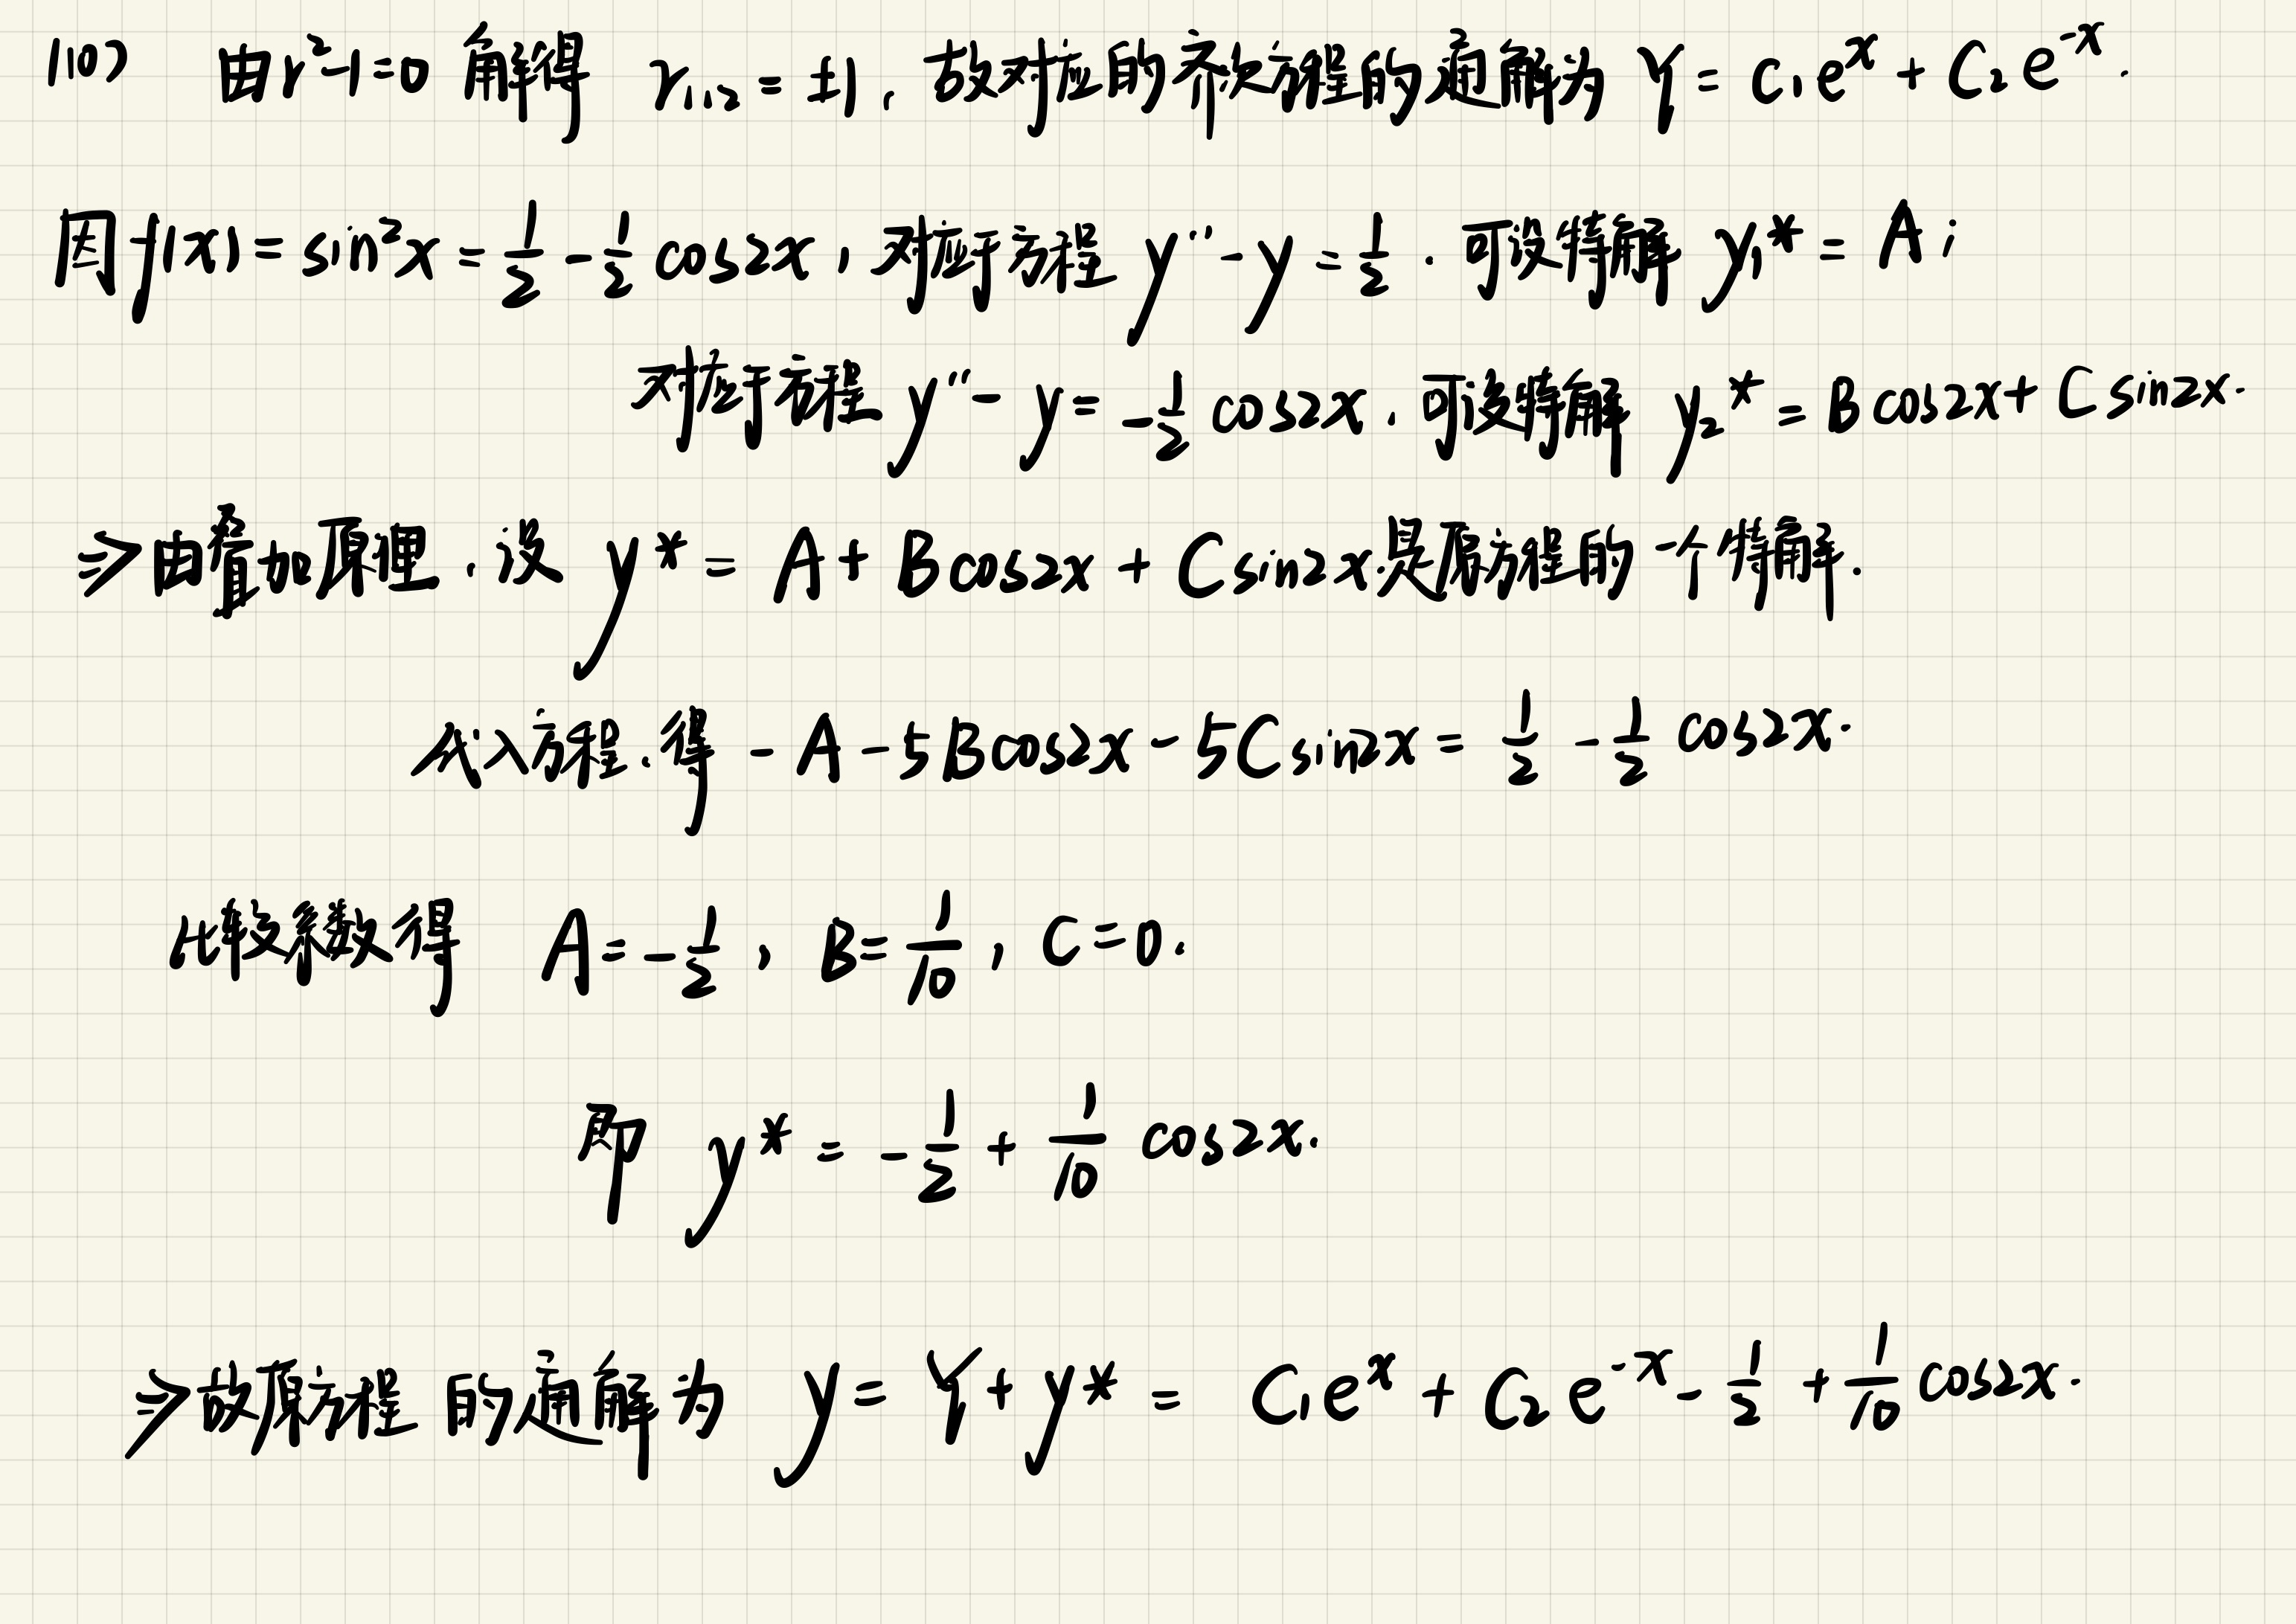 (10) 由r²-1=0 解得 r₁,₂ = ±1, 故对应的齐次方程的通解为 Y = C₁eˣ + C₂e⁻ˣ.
因f(x) = sin²x = 1/2 - 1/2 cos2x, 对应于方程 y'' - y = 1/2. 可设特解 y₁* = A;
对应于方程 y'' - y = -1/2 cos2x. 可设特解 y₂* = B cos2x + C sin2x.
⇒由叠加原理.设 y* = A + B cos2x + C sin2x.是原方程的一个特解.
代入方程.得 - A - 5B cos2x - 5C sin2x = 1/2 - 1/2 cos2x.
比较系数得 A = -1/2, B = 1/10, C = 0.
即 y* = -1/2 + 1/10 cos2x.
⇒故原方程的通解为 y = Y + y* = C₁eˣ + C₂e⁻ˣ - 1/2 + 1/10 cos2x.